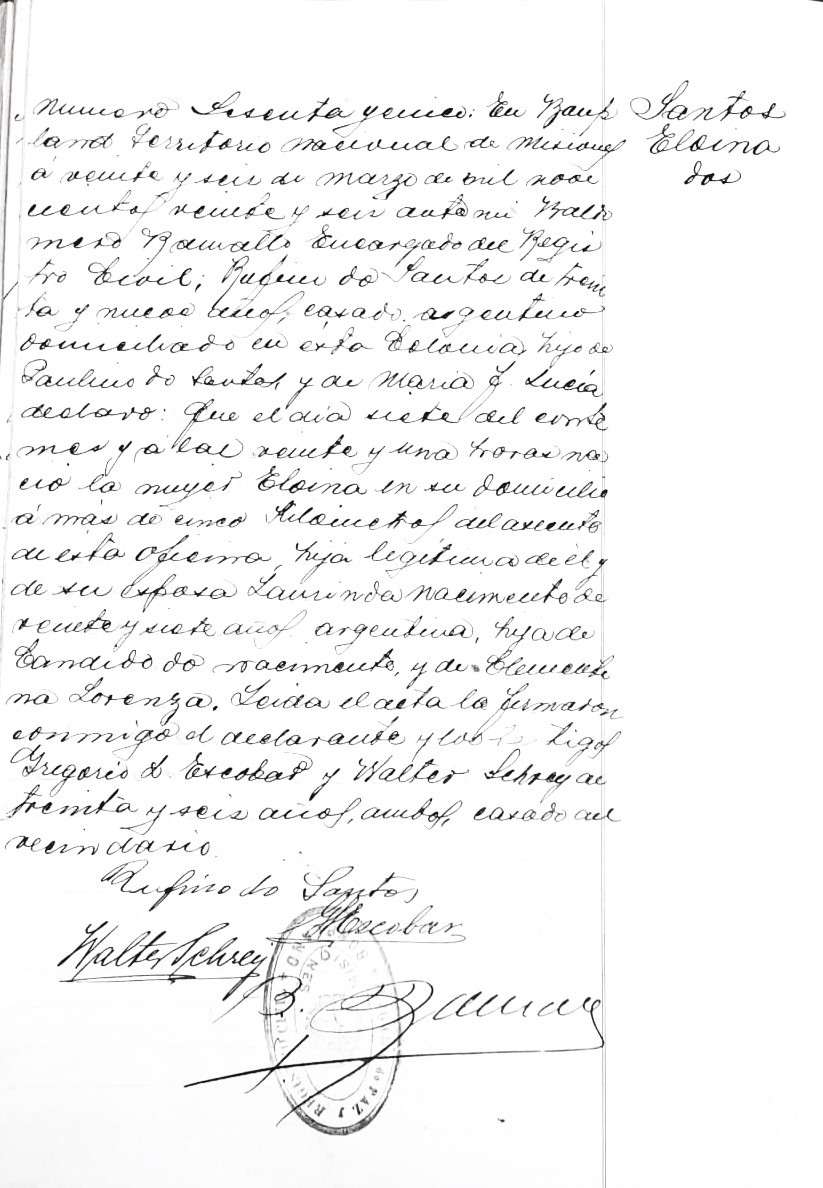 Numero Sesenta y cinco: En Bonp
land Territorio nacional de Misiones
á veinte y seis de marzo de mil nove
cientos veinte y seis ante mi Baldo
mero Ramallo Encargado del Regis
tro Civil; Rufino do Santos de trein
ta y nueve años, casado, argentino
domiciliado en esta Colonia, hijo de
Paulino do Santos y de Maria F. Lucía
declaro: Que el día siete del corrte
mes y á las veinte y una horas na
ció la mujer Eloina en su domicilio
á más de cinco Kilometros del asiento
de esta oficina, hija legítima de él y
de su esposa Laurinda Nacimento de
veinte y siete años argentina, hija de
Candido do nacimento, y de Clemente
na Lorenza. Leida el acta la firmaron
conmigo el declarante y los tigos
Gregorio L. Escobar y Walter Schrey de
treinta y seis años, ambos, casado del
vecindario
Santos
Eloina
dos
Rufino do Santos
GLEscobar
Walter Schrey
B. Ramallo